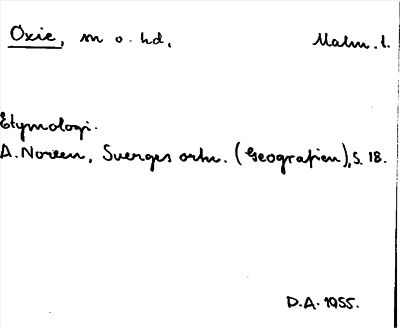 Oxie, sn o. hd, Malm. l.
Etymologi.
A. Noreen, Sveriges ortn. (Geografien), S. 18.
D.A. 1955.